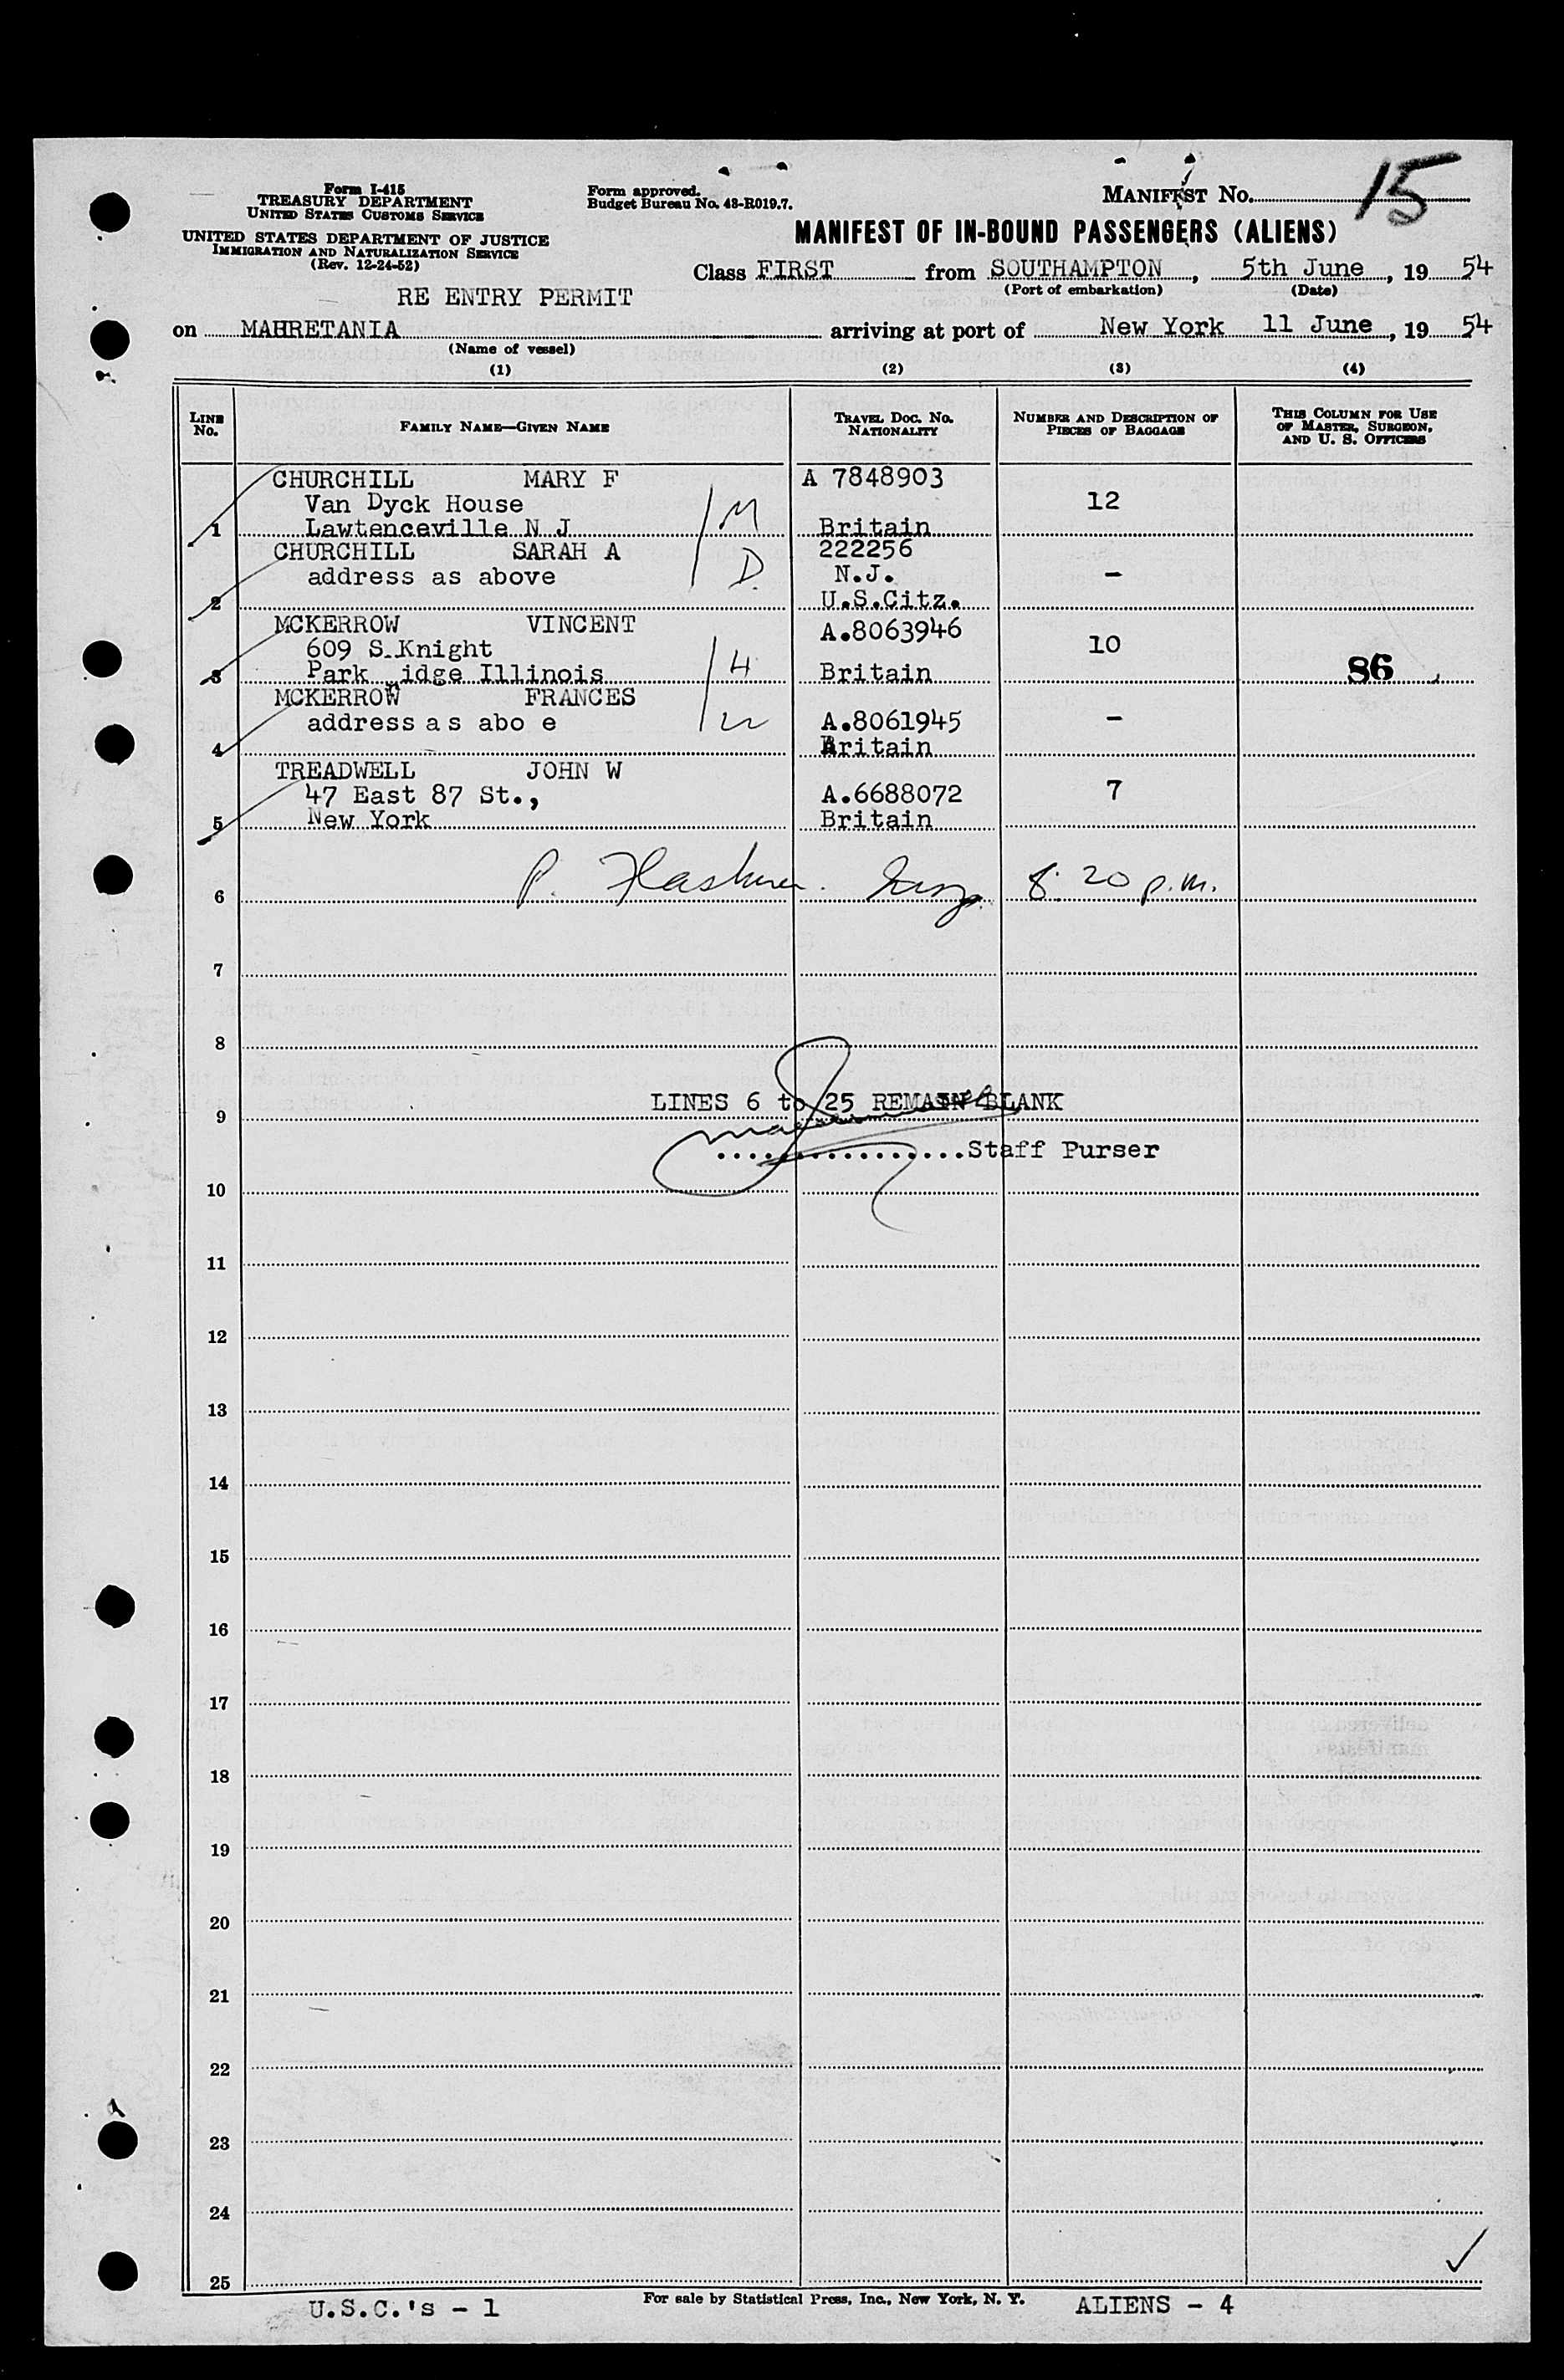 Form I-415
TREASURY DEPARTMENT
UNITED STATES CUSTOMS SERVICE
UNITED STATES DEPARTMENT OF JUSTICE
IMMIGRATION AND NATURALIZATION SERVICE
(Rev. 12-24-52)
Form approved.
Budget Bureau No. 43-R019.7.
MANIFEST No. 15
MANIFEST OF IN-BOUND PASSENGERS (ALIENS)
Class FIRST from SOUTHAMPTON, 5th June, 19 54
(Port of embarkation) (Date)
RE ENTRY PERMIT
on MAHRETANIA arriving at port of New York 11 June, 19 54
(Name of vessel)
(1) (2) (3) (4)
LINE No. FAMILY NAME—GIVEN NAME TRAVEL DOC. NO. NATIONALITY NUMBER AND DESCRIPTION OF PIECES OF BAGGAGE THIS COLUMN FOR USE OF MASTER, SURGEON, AND U. S. OFFICERS
CHURCHILL MARY F A 7848903
Van Dyck House M 12
1 Lawtenceville N J Britain
CHURCHILL SARAH A 222256
address as above D. N.J. -
2 U.S.Citz.
MCKERROW VINCENT A.8063946
609 S.Knight 4 10
3 Park idge Illinois Britain 86
MCKERROW FRANCES
address as abo e A.8061945 -
4 Britain
TREADWELL JOHN W
47 East 87 St., A.6688072 7
5 New York Britain
6 P. 8.20 p.m.
7
8
LINES 6 to 25 REMAIN BLANK
9
..................Staff Purser
10
11
12
13
14
15
16
17
18
19
20
21
22
23
24
25
For sale by Statistical Press, Inc., New York, N. Y.
U.S.C.'s - 1 ALIENS - 4